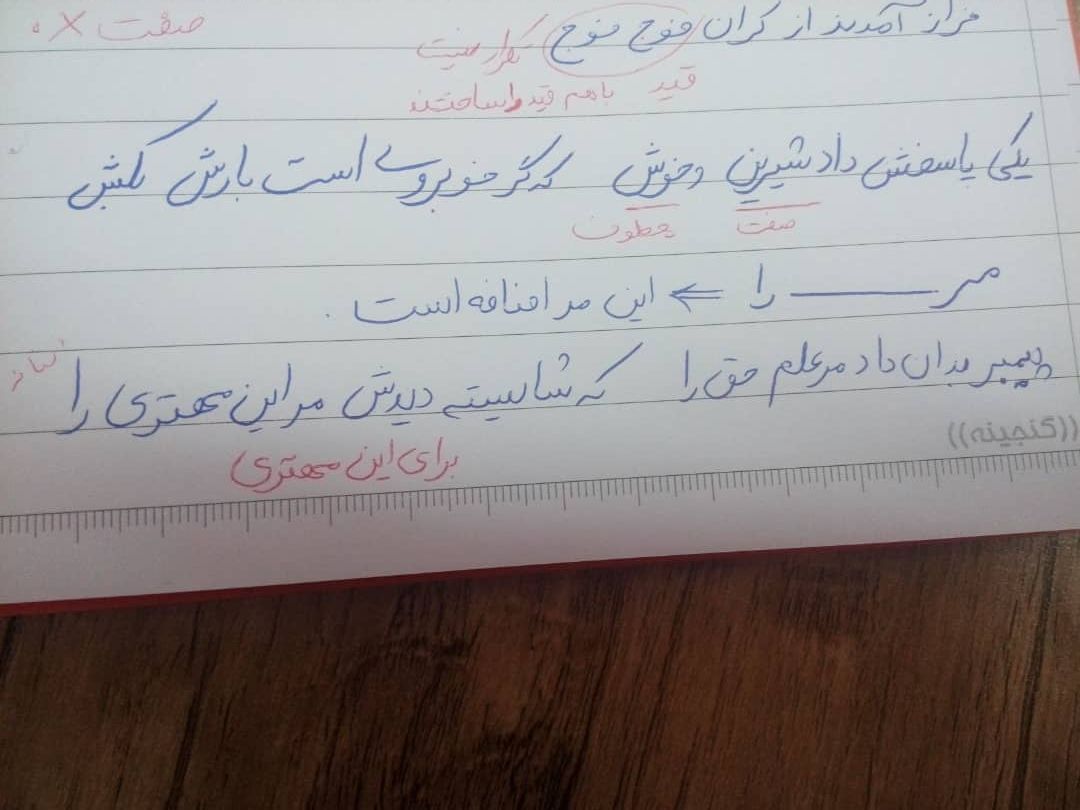 فراز آمدند از کران فوج فوج تکرار نیست صفت X
قید باهم قید را ساختند
یکی پاسخش داد شیرین و خوش که گر خوبروی است بارش بکش
صفت چطور
مر ــــ را ⇐ این مر اضافه است .
پیمبر بدان داد مر علم حق را که شایسته دیدش مر این مهتری را
برای این مهتری
((گنجینه))